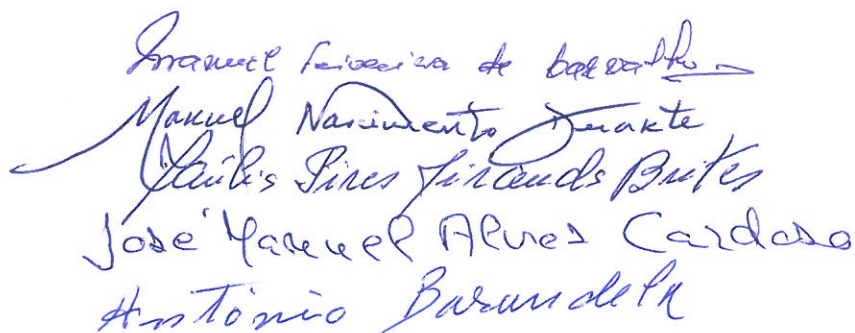 Manuel Teixeira de Carvalho
Manuel Nascimento Duarte
Pires Brites
José Manuel Alves Cardoso
António Barandela